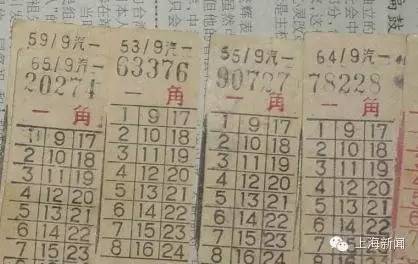 59/9汽一
65/9汽一
20274
一角
1 9 17
2 10 18
3 11 19
4 12 20
5 13 21
6 14 22
7 15 23
53/9汽一
63376
一角
1 9 17
2 10 18
3 11 19
4 12 20
5 13 21
6 14 22
7 15 23
8 16 24
55/9汽一
90727
一角
1 9 17
2 10 18
3 11 19
4 12 20
5 13 21
6 14 22
7 15 23
8 16 24
64/9汽一
78228
一角
1 9 17
2 10 18
3 11 19
4 12 20
5 13 21
6 14 22
7 15
8 16
上海新闻